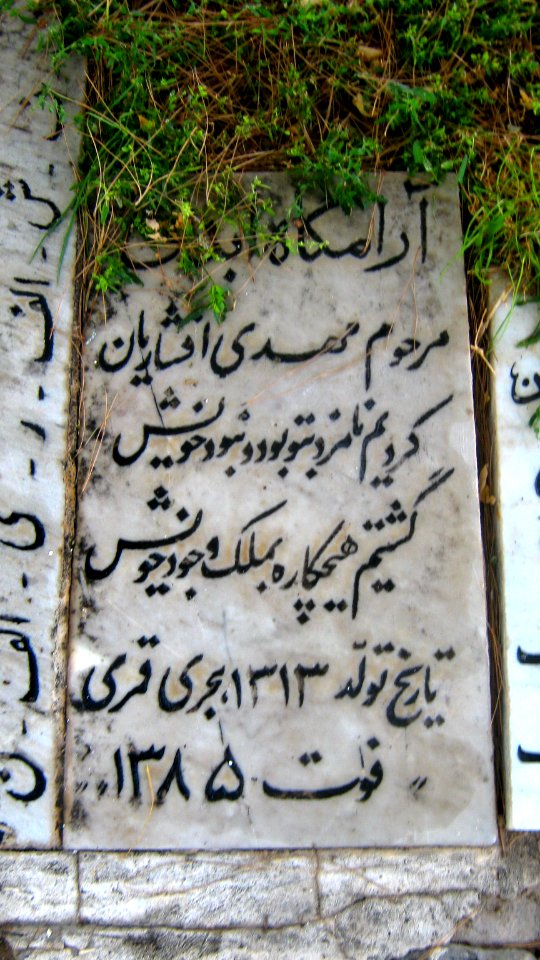 آرامگاه
مرحوم مهدی افشاریان
کردیم نامزد بتو بود و نبود خویش
گشتیم هیچکاره بملک وجود خویش
تاریخ تولد ۱۳۱۳ هجری قمری
〃 فوت ۱۳۸۵ 〃 〃